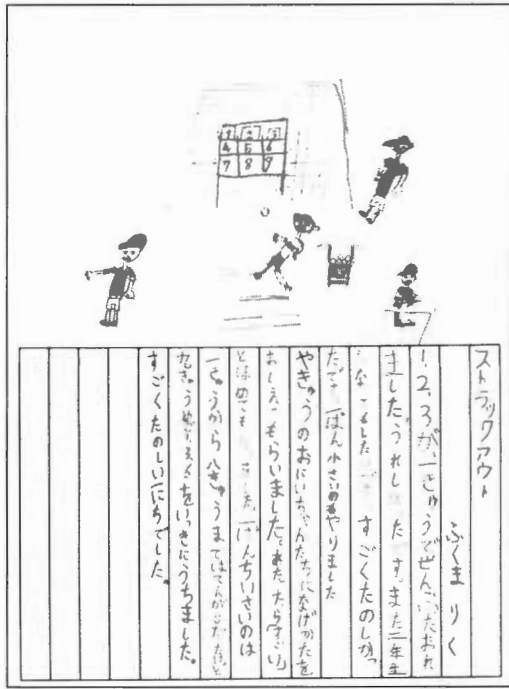 1 2 3
4 5 6
7 8 9
ストラックアウト
ふくま りく
1、2、3が、一きゅうでぜんぶたおれ
ました。うれし た す。また二年生
な もした すごくたのしかっ
たです。一ばん小さいのもやりました
やきゅうのおにいちゃんたちになげかたを
おしえてもらいました。あたったら「すごい」
とほめ ました。一ばんちいさいのは
一きゅうから八きゅうまでは
九きゅうめで をいっきにうちました。
すごくたのしい一にちでした。